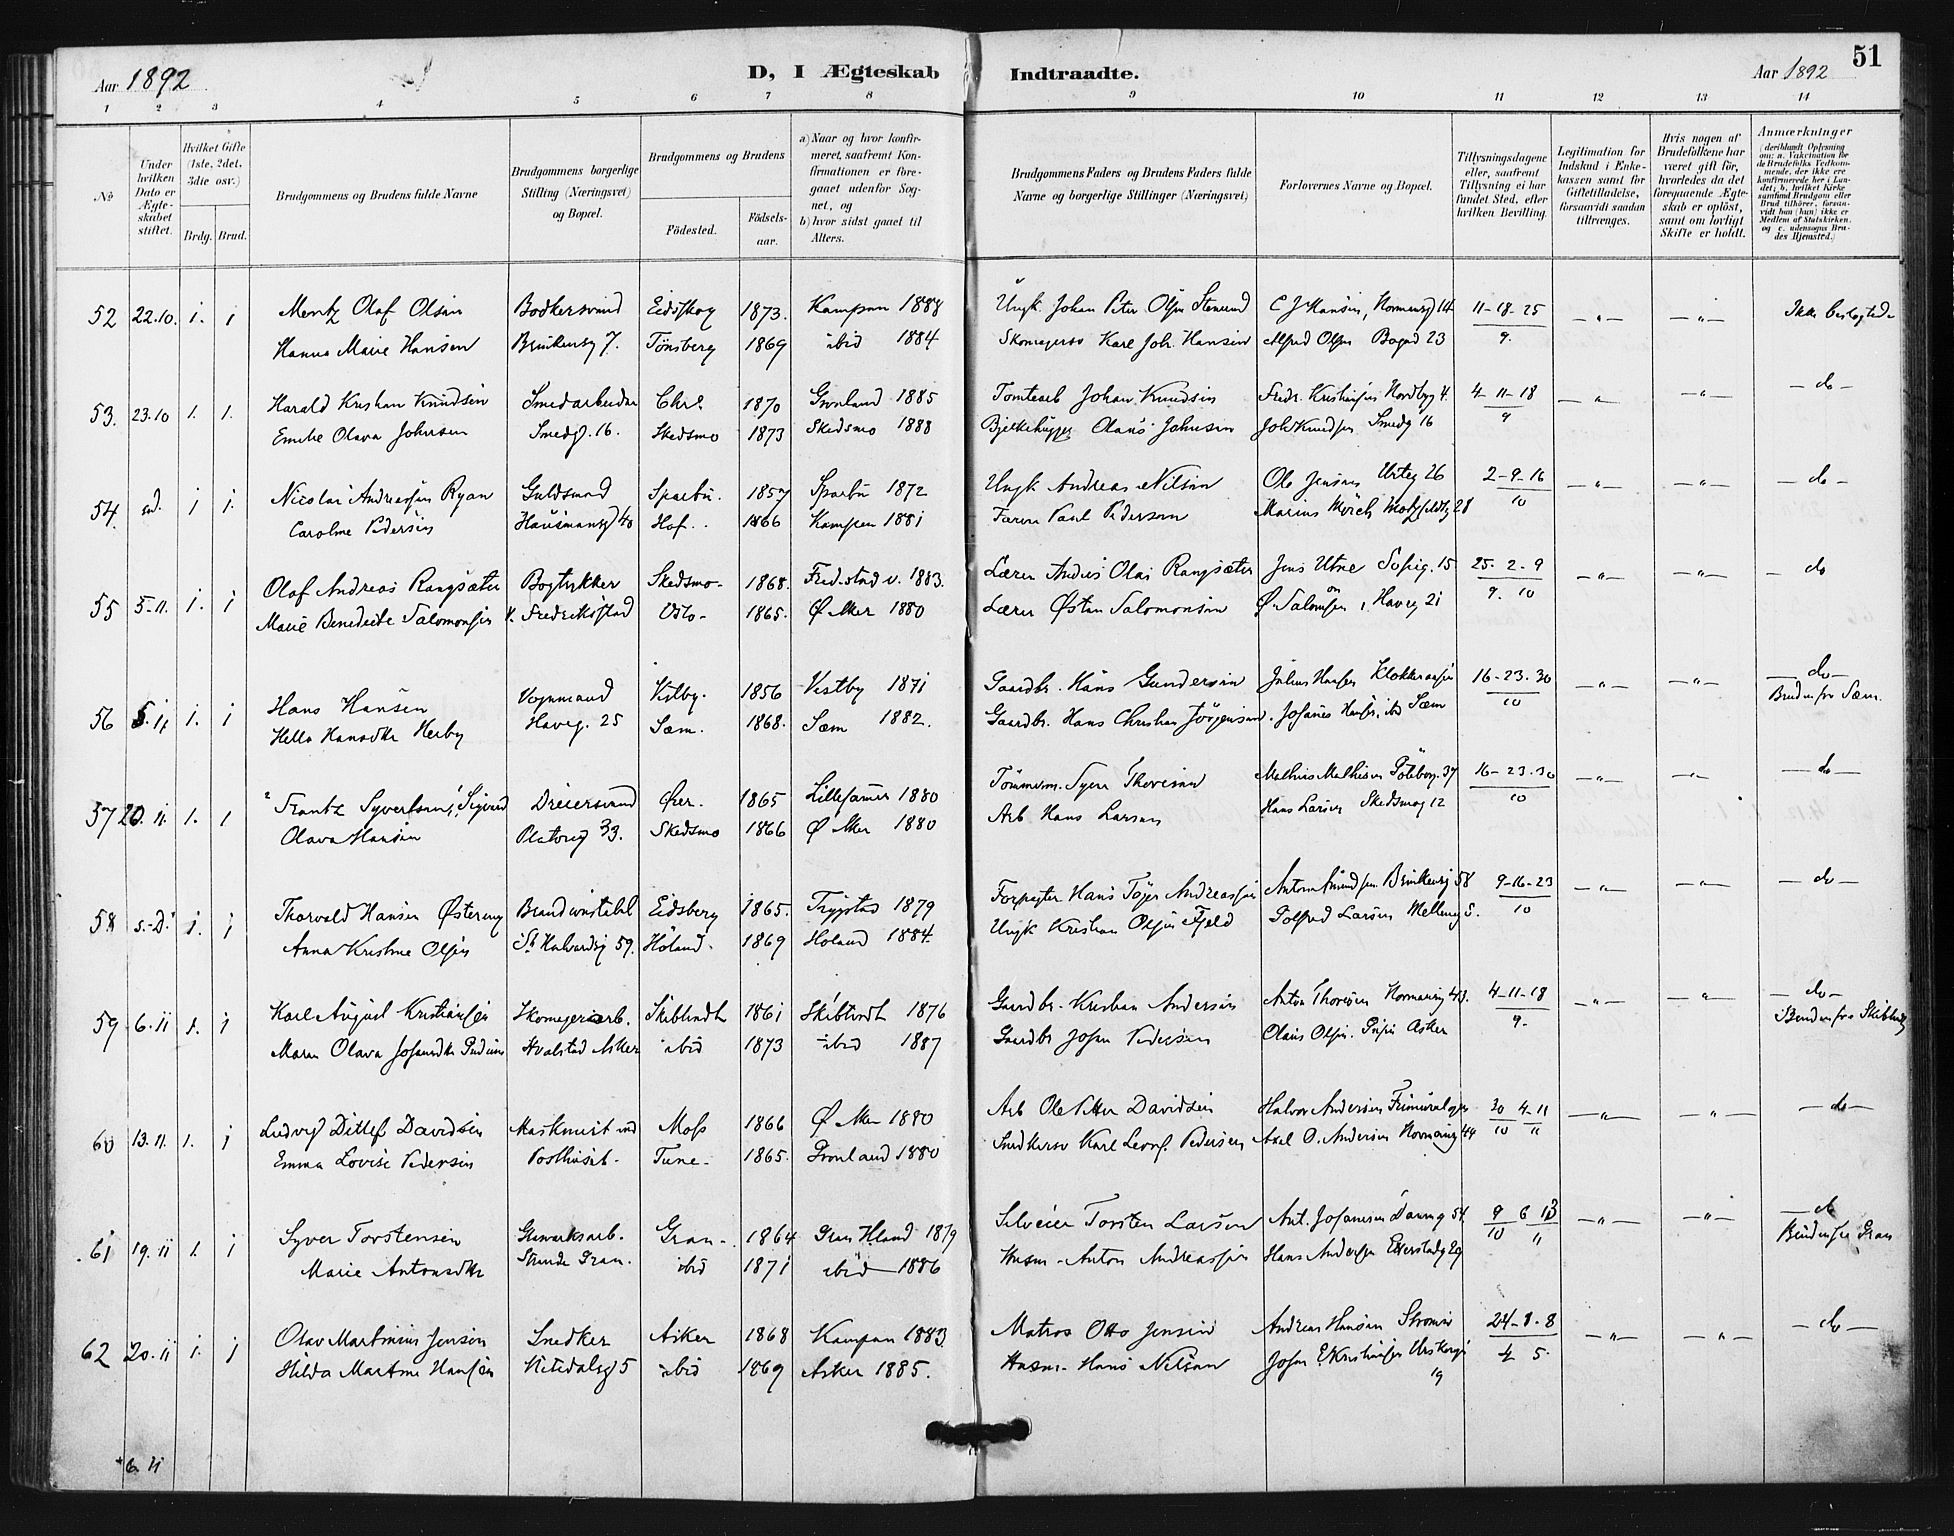 Aar 1892
D, I Ægteskab Indtraadte.
Aar 1892
51
1 2 3 4 5 6 7 8 9 10 11 12 13 14
No
Under hvilken Dato er Ægteskabet stiftet.
Hvilket Gifte (1ste, 2det, 3die osv.)
Brdg. Brud.
Brudgommens og Brudens fulde Navne
Brudgommens borgerlige Stilling (Næringsvei) og Bopæl.
Brudgommens og Brudens
Fødested.
Fødselsaar.
a) Naar og hvor konfirmeret, saafremt Konfirmationen er foregaaet udenfor Sognet, og
b) hvor sidst gaaet til Alters.
Brudgommens Faders og Brudens Faders fulde Navne og borgerlige Stillinger (Næringsvei)
Forlovernes Navne og Bopæl.
Tillysningsdagene eller, saafremt Tillysning ei har fundet Sted, efter hvilken Bevilling.
Legitimation for Indskud i Enkekassen samt for Giftetilladelse, forsaavidt saadan tiltrænges.
Hvis nogen af Brudefolkene har været gift før, hvorledes da det foregaaende Ægteskab er opløst, samt om lovligt Skifte er holdt.
Anmærkninger (deriblandt Oplysning om: a. Vakcination for de Brudefolks Vedkommende, der ikke ere konfirmerede her i Landet; b. hvilket Kirkesamfund Brudgom eller Brud tilhører, forsaavidt han (hun) ikke er Medlem af Statskirken, og c. udensogns Brudes Hjemsted.)
52 22.10. 1. 1 Mentz Olaf Olsen Bødkersvend Eidskog 1873. Kampen 1888 Ungk. Johan Peter Olsen Stensrud C J Hansen, Normansg 14 11-18-25 — " — — " — Ikke beslegtede
Hanna Marie Hansen Brinkensg 7. Tønsberg 1869 ibid 1884 Skomagersv Karl Joh. Hansen Alfred Olsen Bogad 23 9.
53. 23.10 1. 1. Harald Kristian Knudsen Smedarbeider Chra 1870 Grønland 1885 Tomtearb Johan Knudsen Fredr. Kristiansen Nordbyg 4. 4-11-18 — " — — " — — do —
Emilie Olava Johnsen Smedg. 16. Skedsmo 1873 Skedsmo 1888 Bjelkehugger Olaus Johnsen Joh Knudsen Smedg 16 9
54. sd. 1 1. Nicolai Andreassen Ryan Guldsmed Sparbu. 1857 Sparbu 1872 Ungk Andreas Nilsen Ole Jensen Urteg 26 2-9-16 — " — — " — — do —
Caroline Pedersen Hausmansg 40 Hof. 1866 Kampen 1881 Farver Paul Pedersen Marius Mörch Motzfeldtg 28 10
55 5-11. 1. 1 Olaf Andreas Rangsæter Bogtrykker Skedsmo- 1868. Fred.stad v. 1883. Lærer Andreas Olai Rangsæter Jens Utne Sofieg. 15 25. 2-9 — " — — " — — do
Marie Benedicte Salomonsen Fredriksstad Oslo- 1865. Ø Aker 1880 Lærer Østen Salomonsen Ø. Salomonsen, Haveg 21 9. 10
56 5.11 1. 1 Hans Hansen Vognmand Vestby. 1856 Vestby 1871 Gaardbr. Hans Gundersen Julius Hansen 16-23-30 — " — — " — — do —
Helle Hansdtr Herby Haveg. 25 Sæm. 1868. Sæm 1882. Gaardbr. Hans Christian Jörgensen. Johannes Hansen, ibd Sæm 10 Bruden fra Sæm.
57 20.11. 1. 1 Frantz Syvertsen, Sigurd Dreiersvend Øier. 1865 Lillehamer 1880 Tömmerm. Syver Thoresen Mathias Mathisen Töieng. 37 16-23.30 — " — — " — — do —
Olava Hansen Platoug 33. Skedsmo 1866 Ø Aker 1880 Arb Hans Larsen Hans Larsen Skedsmog 12 10
58 s.D. 1. 1 Thorvald Hansen Østereng Brandconstabel Eidsberg 1865. Trygstad 1879 Forpagter Hans Töger Andreassen Anton Amundsen Brinkensg 58 9-16-23 — " — — " — — do —
Anna Kristine Olsen St Halvardsg 59. Höland. 1869 Höland 1884. Ungk Kristian Olsen Fjeld Tolfred Larsen Mellemg 5. 10
59 6.11 1. 1 Karl August Kristiansen Skomagerarb. Skibtvedt 1861 Skibtvedt 1876 Gaardbr. Kristian Andersen Anton Thoresen Normansg 43. 4-11-18 — " — — " — — do —
Maren Olava Johansdtr Pedersen Hvalstad Asker ibid 1873 ibid 1887 Gaardbr Johan Pedersen Olaus Olsen. Asker 9. Bruden fra Skibtvedt
60 13.11. 1. 1 Ludvig Ditlef Davidsen Maskinist ved Moss 1866 Ø Aker 1880 Arb Ole Petter Davidsen Halvor Andersen 30 4-11 — " — — " — — do —
Emma Lovise Pedersen Posthuset. Tune- 1865. Grønland 1880 Snedkersv Karl Leonh. Pedersen Axel O. Andersen Normansg 44 10 11
61 19.11 1. 1 Syver Torstensen Glasværksarb. Gran- 1864 Gran Hland 1879 Torsten Larsen Ant. Johansen 54. 9 6 13 — " — — " — — do
Marie Antonsdtr Strande Gran. ibid 1871 ibid — 1886 Husm- Anton Andreassen Hans Andersen 29 10 11 Bruden fra Gran
62 20.11 1. 1 Olav Martinius Jensen Snedker Asker 1868 Kampen 1883. Matros Otto Jensen Andreas Hansen 24-1-8 — " — — " — — do —
Hilda Martine Hansen Nitedalsg 5 ibid 1869 Asker 1885. Husm- Hans Nilsen Johan E. Kristiansen 19 4 5.
* 6. 11